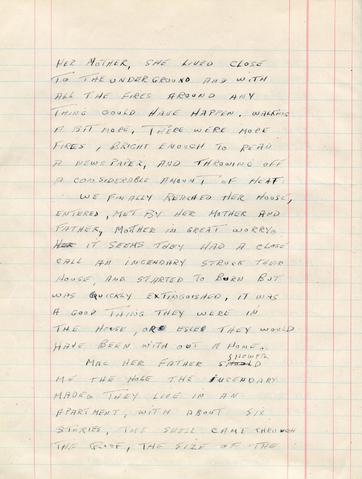 HER MOTHER, SHE LIVED CLOSE
TO THE UNDERGROUND AND WITH
ALL THE FIRES AROUND ANY
THING COULD HAVE HAPPEN, WALKING
A BIT MORE, THERE WERE MORE
FIRES, BRIGHT ENOUGH TO READ
A NEWSPAPER, AND THROWING OFF
A CONSIDERABLE AMOUNT OF HEAT.
WE FINALLY REACHED HER HOUSE,
ENTERED, MET BY HER MOTHER AND
FATHER, MOTHER IN GREAT WORRY.
IT SEEMS THEY HAD A CLOSE
CALL AN INCENDARY STRUCK THEIR
HOUSE, AND STARTED TO BURN BUT
WAS QUICKLY EXTINGUISHED, IT WAS
A GOOD THING THEY WERE IN
THE HOUSE, OR ELSE THEY WOULD
HAVE BEEN WITH OUT A HOME.
MAC HER FATHER SHOWED
ME THE HOLE THE INCENDARY
MADE, THEY LIVE IN AN
APARTMENT, WITH ABOUT SIX
STORIES, THE SHELL CAME THROUGH
THE ROOF, THE SIZE OF THE